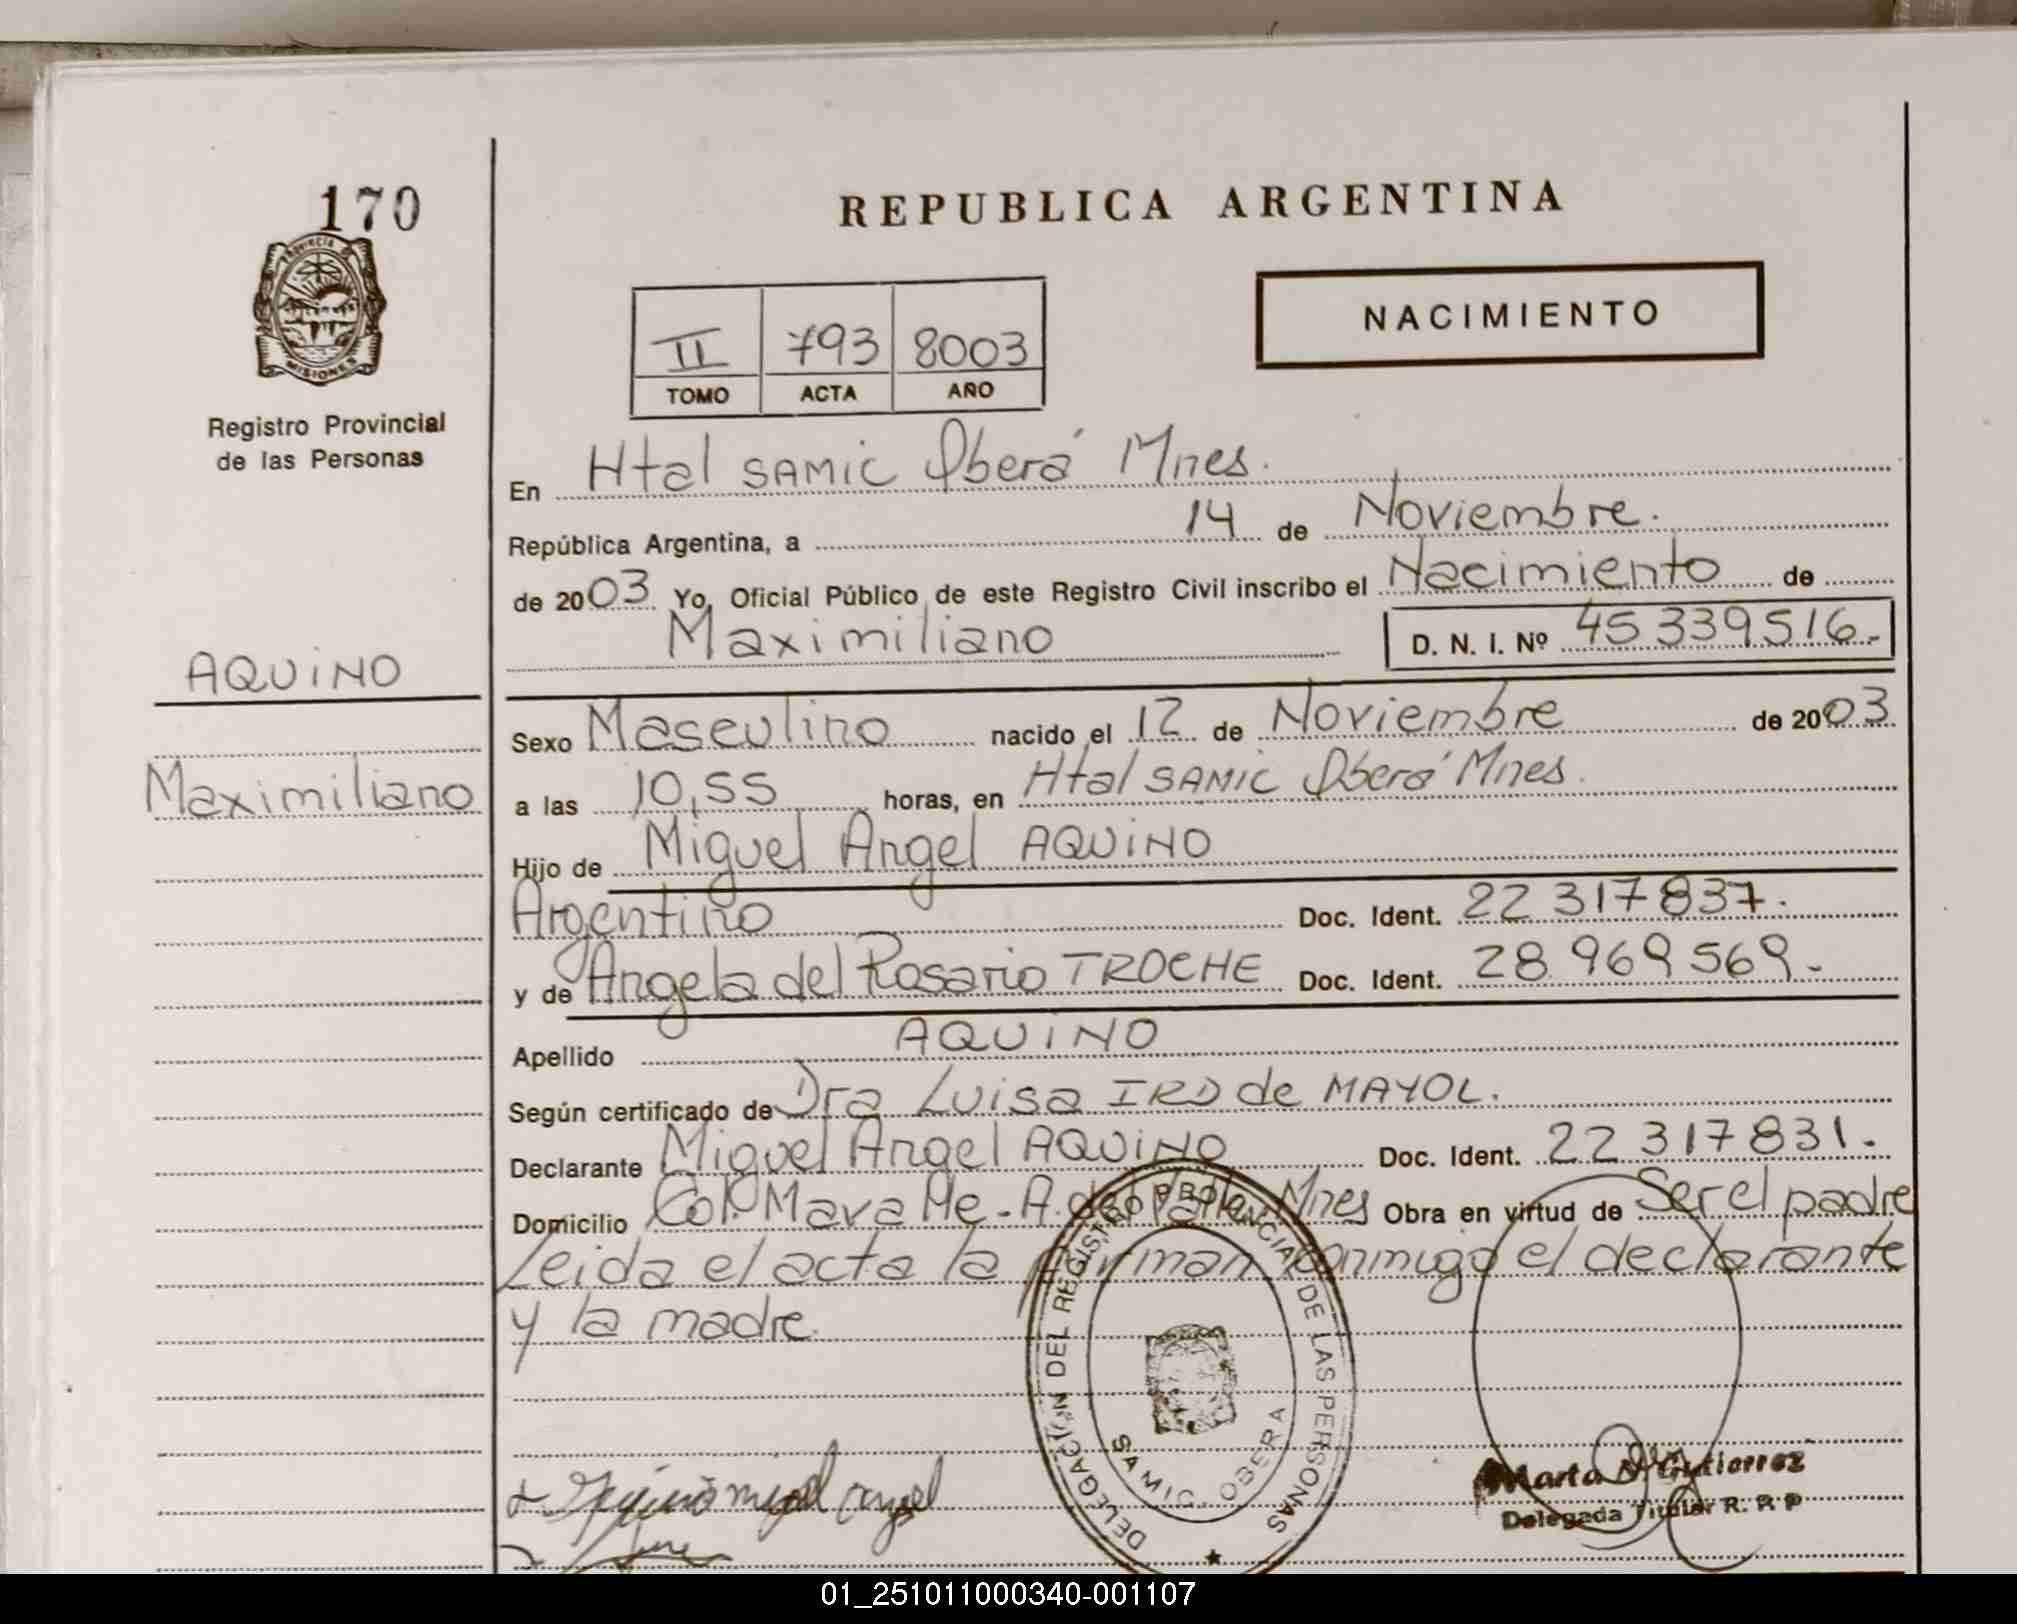 170
REPUBLICA ARGENTINA
PROVINCIA
MISIONES
NACIMIENTO
II 793 8003
TOMO ACTA AÑO
Registro Provincial
de las Personas
En Htal SAMIC Oberá Mnes.
República Argentina, a 14 de Noviembre.
de 2003 Yo, Oficial Público de este Registro Civil inscribo el Nacimiento de
Maximiliano D. N. I. Nº 45339516.-
AQUINO
Sexo Masculino nacido el 12 de Noviembre de 2003
Maximiliano
a las 10,55 horas, en Htal SAMIC Oberá Mnes.
Hijo de Miguel Angel AQUINO
Argentino Doc. Ident. 22 317 837.
y de Angela del Rosario TROCHE Doc. Ident. 28 969 569.-
Apellido AQUINO
Según certificado de Dra Luisa IRD de MAYOL.
Declarante Miguel Angel AQUINO Doc. Ident. 22 317 831.
Domicilio Col. A. del Valle Mnes Obra en virtud de Ser el padre
Leida el acta la firman conmigo el declarante
y la madre.
DELEGACION DEL REGISTRO PROVINCIAL DE LAS PERSONAS
SAMIC. OBERA
miguel angel
Marta N. Gutierrez
Delegada Titular R. P. P
01_251011000340-001107